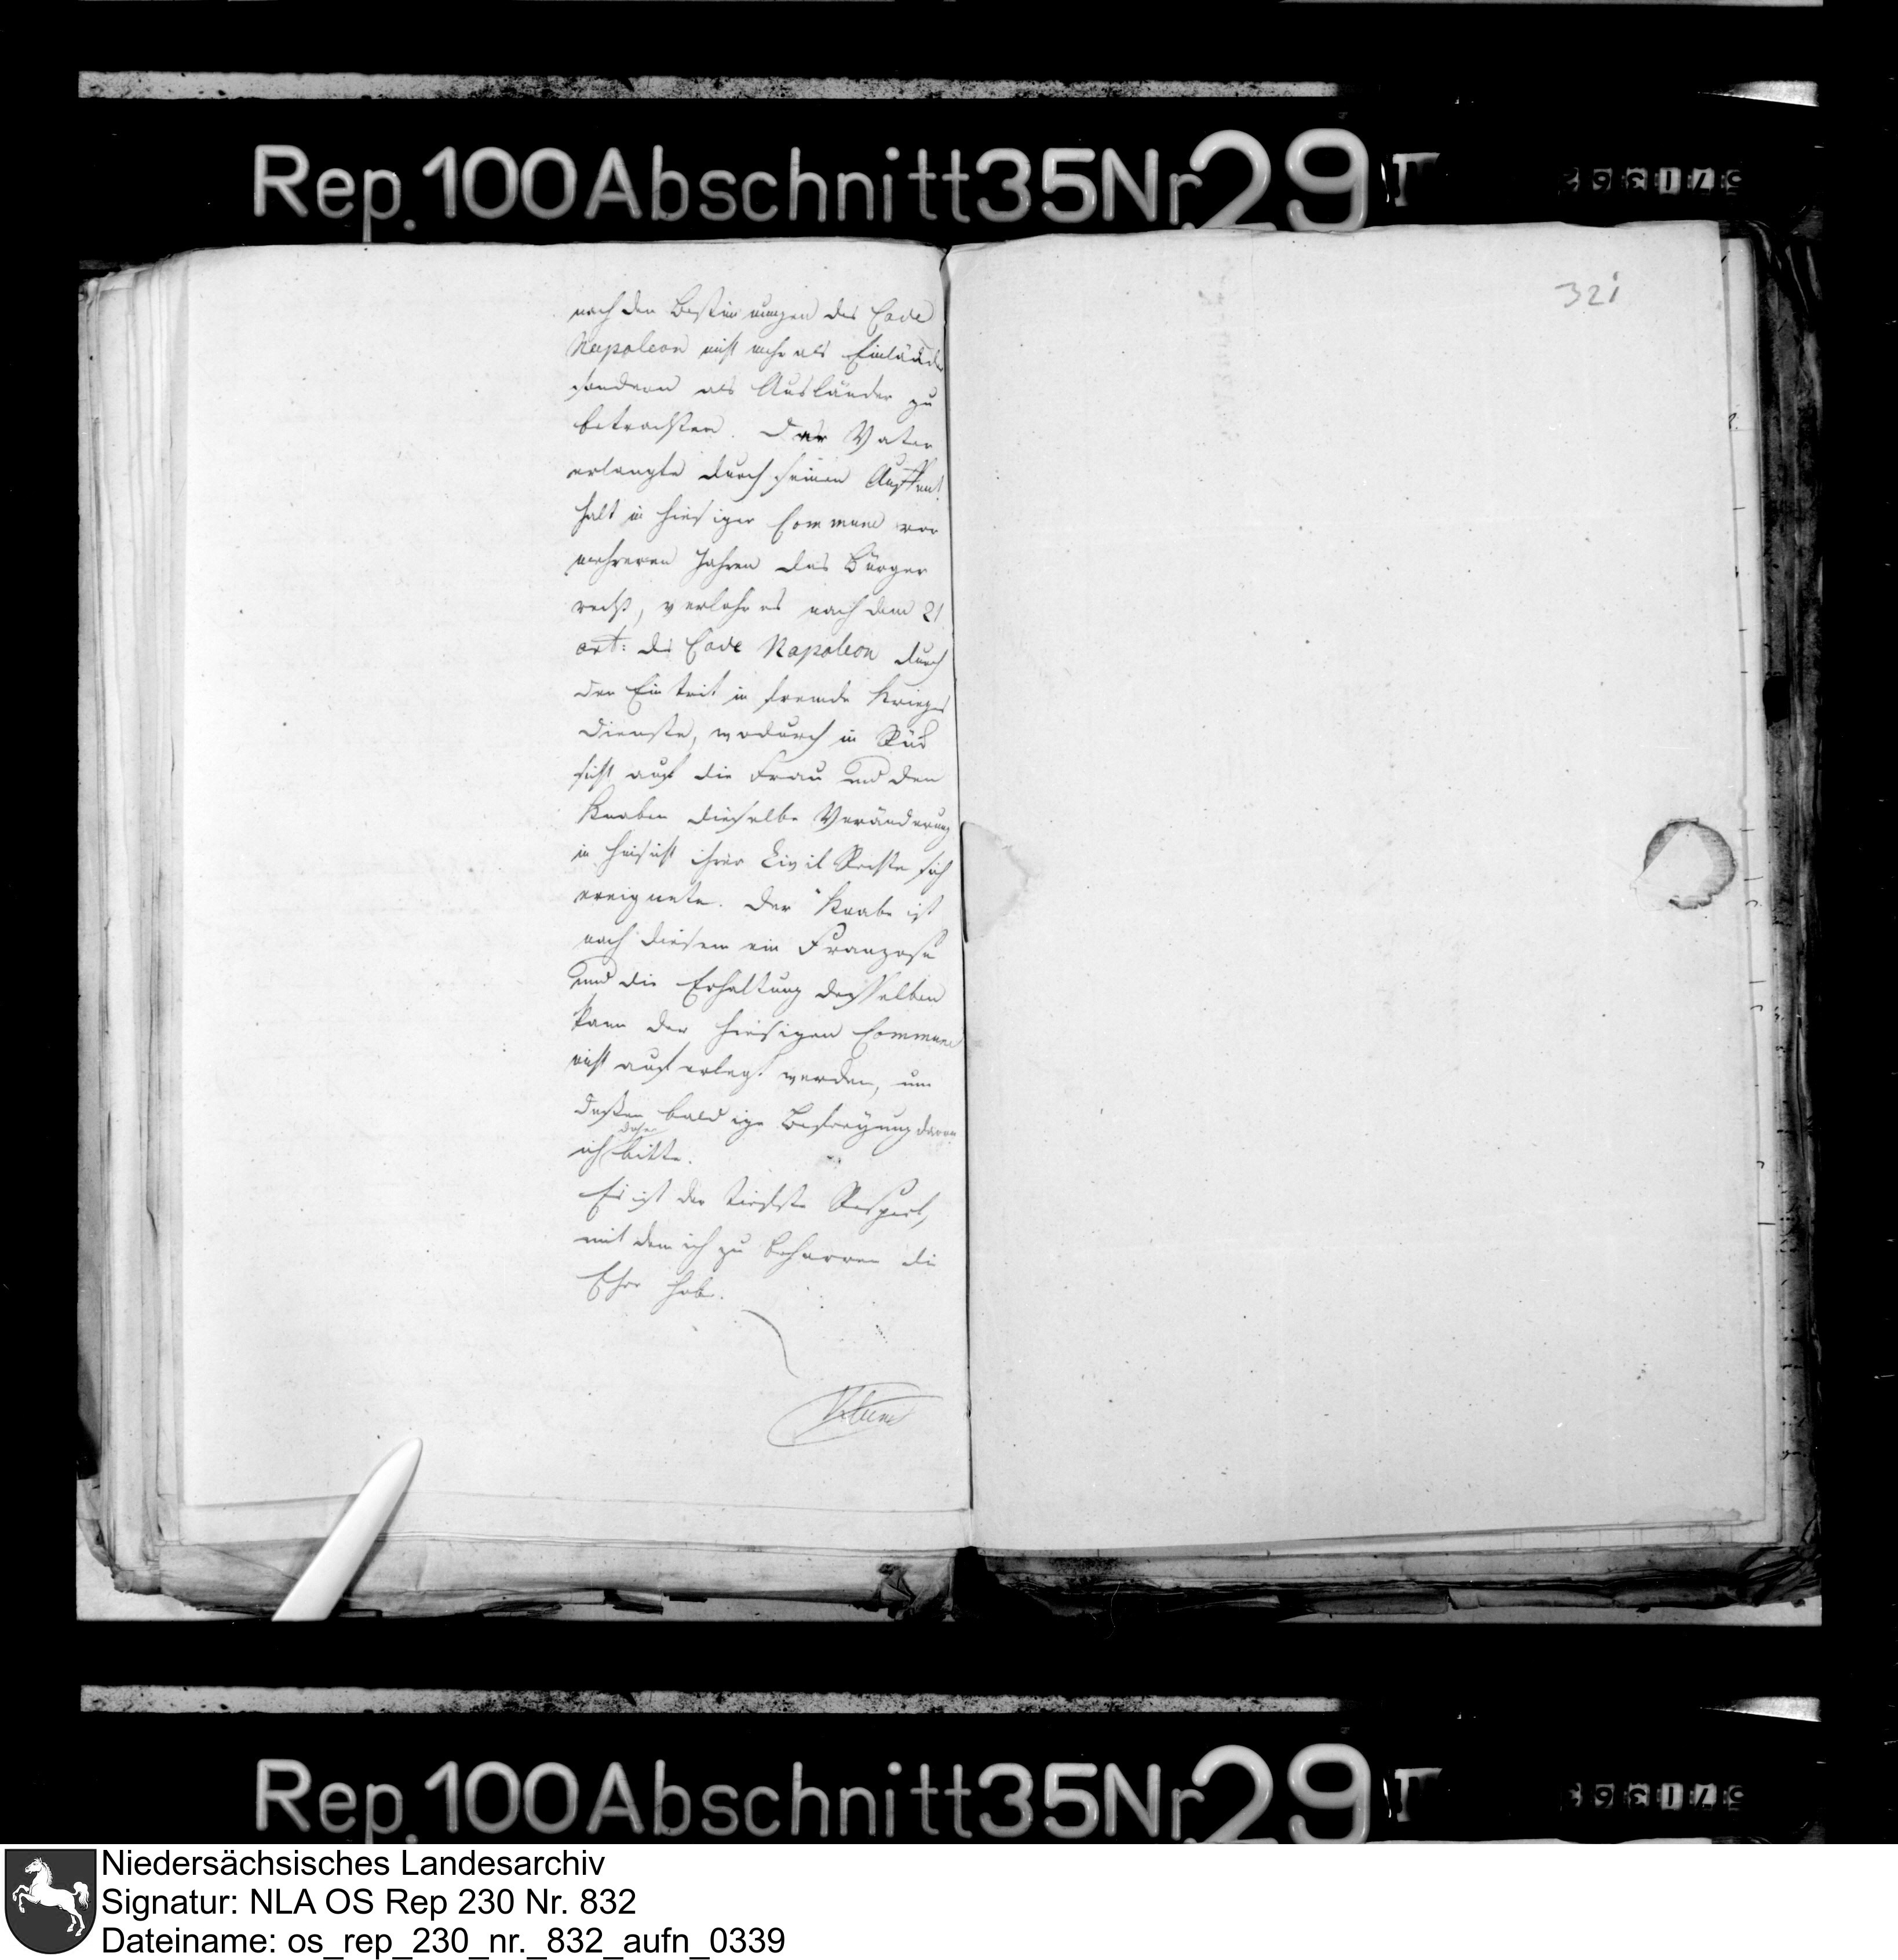 Rep. 100 Abschnitt 35 Nr. 29 I
321
nach den Bestimmungen des Code
Napoleon nicht mehr als Einländer
sondern als Ausländer zu
betrachten. Der Vater
erlangte durch seinen Auffent
halt in hiesiger Commune vor
mehreren Jahren das Bürger
recht, verlohr es nach dem 21
art: des Code Napoleon durch
den Eintrit in fremde Krieges
dienste, wodurch in Rück
sicht auf die Frau und den
Knaben dieselbe Veränderung
in Hinsicht ihrer Civil Rechte sich
ereignete. Der Knabe ist
nach diesem ein Franzose
und die Erhaltung desselben
kann der hiesigen Commune
nicht auferlegt werden, um
dessen baldige Befreyung davon
daher
ich bitte.
Es ist der tiefste Respect,
mit dem ich zu beharren die
Ehre habe.
Rep. 100 Abschnitt 35 Nr. 29 I
Niedersächsisches Landesarchiv
Signatur: NLA OS Rep 230 Nr. 832
Dateiname: os_rep_230_nr._832_aufn_0339